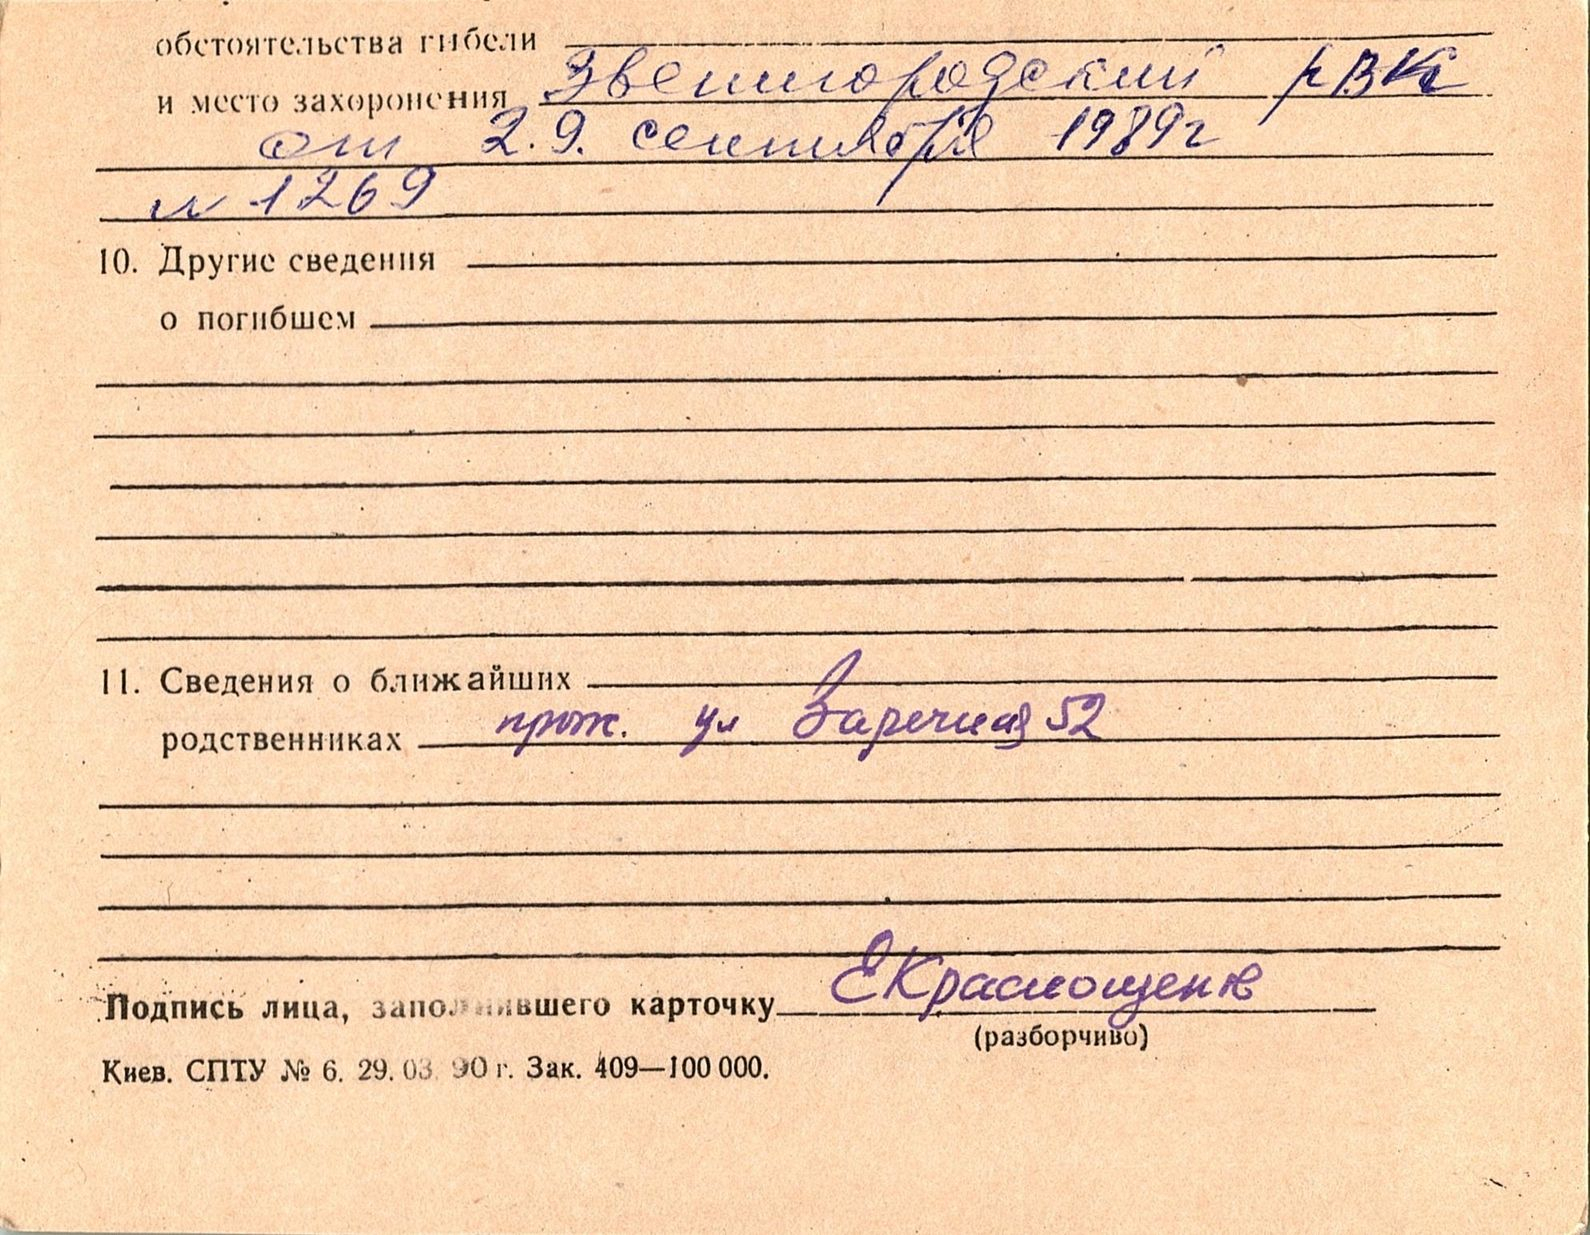 обстоятельства гибели
и место захоронения Звенигородский РВК
от 2.9. сентября 1989г
№ 1269
10. Другие сведения
о погибшем
11. Сведения о ближайших
родственниках прож. ул Заречная 52
Подпись лица, заполнившего карточку ЕКраснощек
(разборчиво)
Киев. СПТУ № 6. 29. 03. 90 г. Зак. 409—100 000.